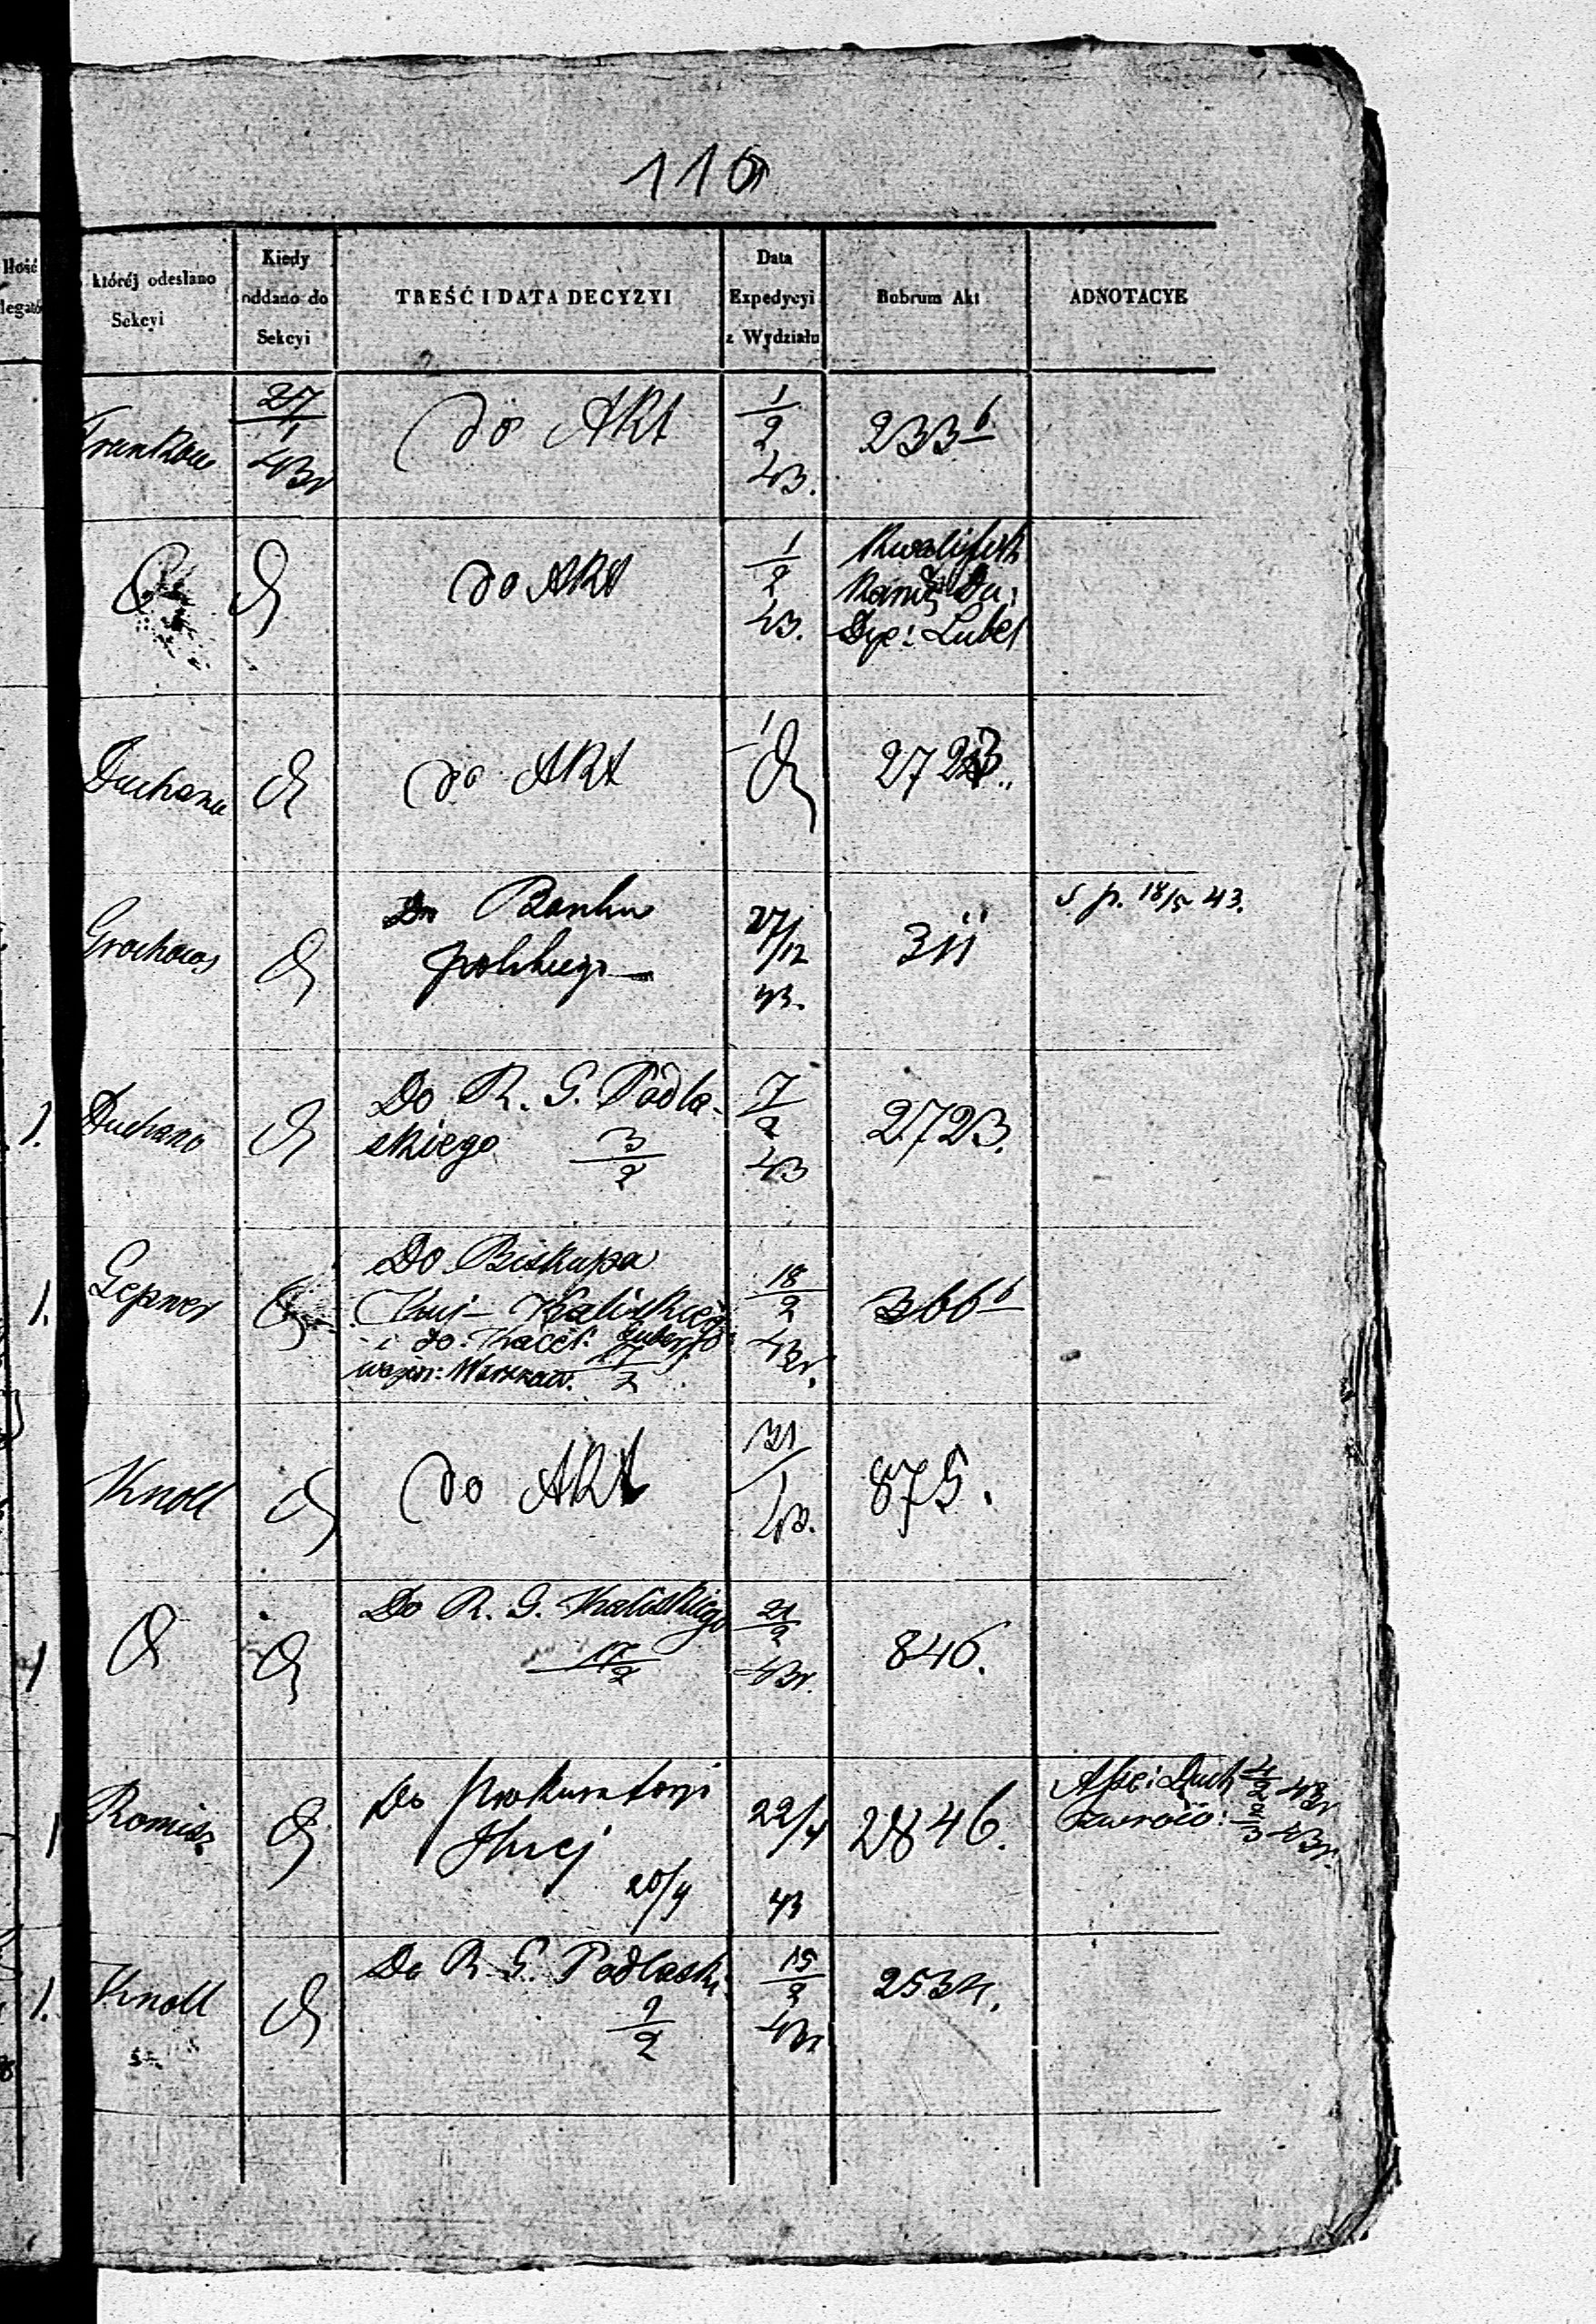 116
Ilość
legatów
któréj odesłano
Sekcyi
Kiedy
oddano do
Sekcyi
TREŚĆ I DATA DECYZYI
Data
Expedycyi
z Wydziału
Rubrum Akt
ADNOTACYE
27/1 43r
do Akt
1/2 43.
233 b
do Akt
1/2 43.
Kwalifik
Kand Du:
Dye: Lubel
Duchano
do Akt
2723.
Grochows
Do Banku
polskiego
27/12 43.
311
s. p. 18/5 43.
1. Duchano
Do R. G. Podla-
skiego 3/2
7/2 43
2723.
1. Gepner
Do Biskupa
Kuj- Kaliskiego
i do Nacel:
wojen: Warszaw. 17/2
18/2 43r.
366 b
Knoll
do Akt
31/1 43.
875.
1
Do R. G. Kaliskiego
17/2
21/2 43r.
846.
1
Do Prokuratoryi
20/4
22/4 43
2846.
Asse: Duch 4/2 43r
zwróco: 2/3 43r.
1. Knoll
Do R. G. Podlaski.
9/2
15/2 43r
2534.